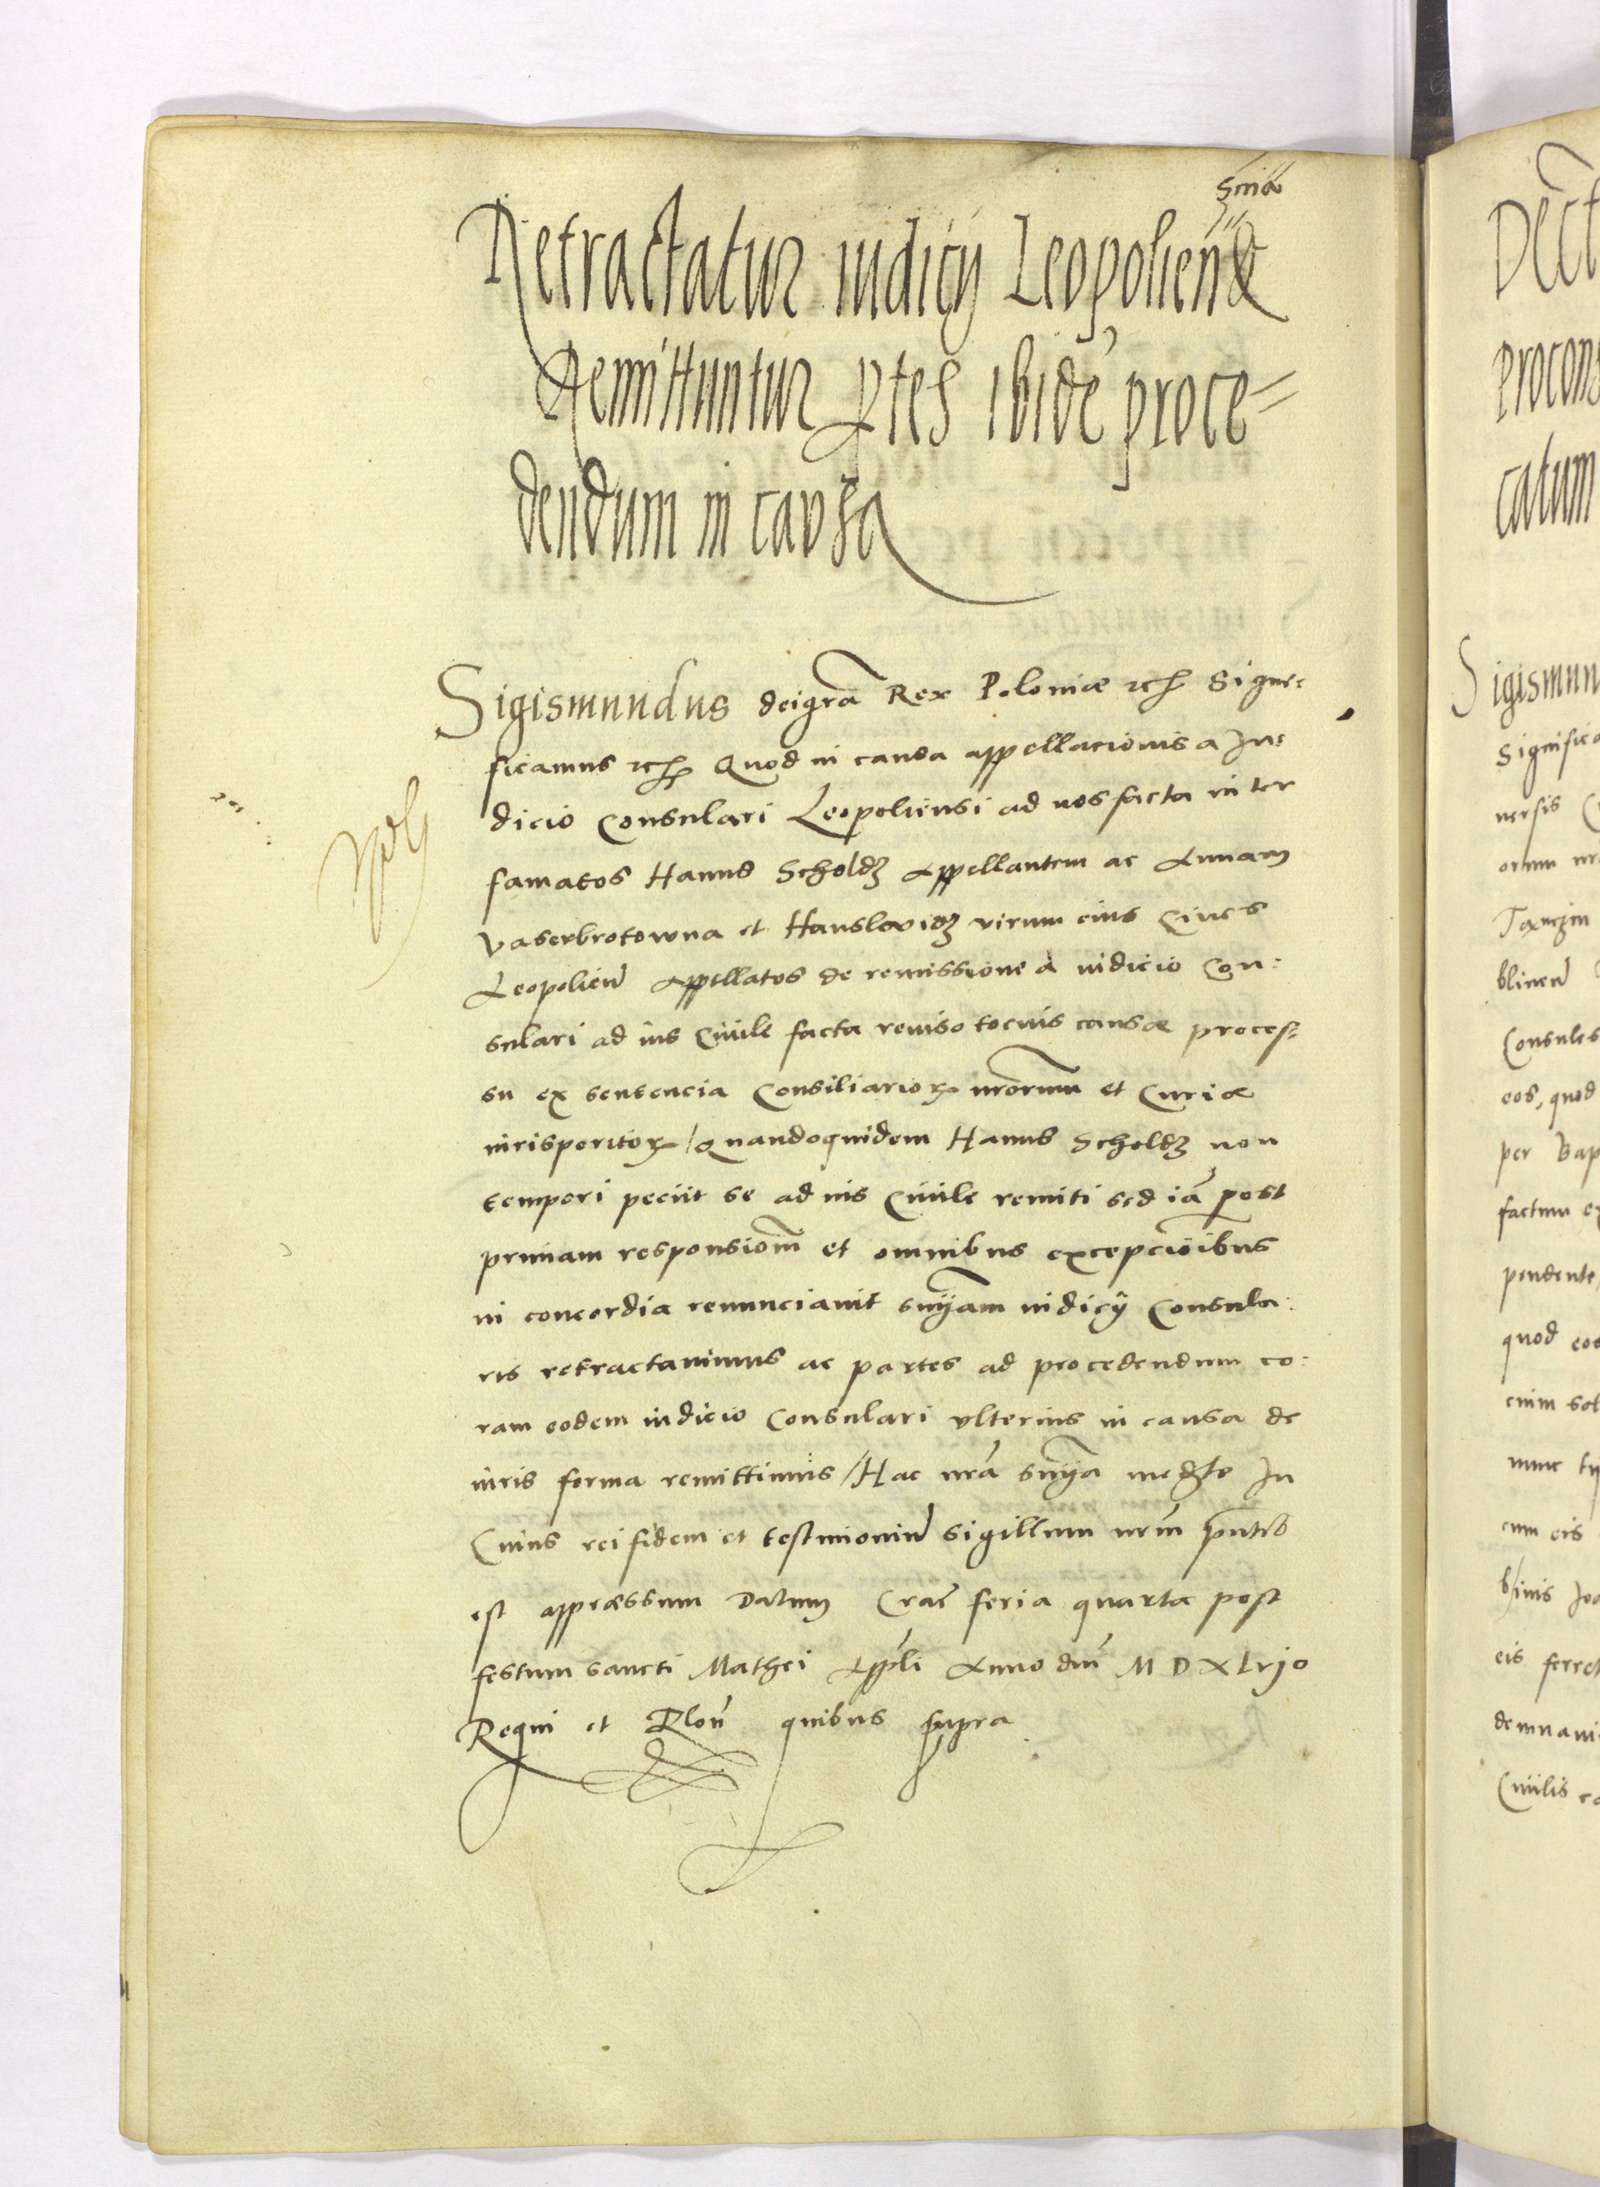 Sniã
Retractatur iudicij Leopolien̄ &
Remittuntur ptes ibidē proce=
dendum in causa
Sigismundus dei grã Rex Poloniæ etc Signi-
ficamus etc Quod in causa appellacionis a Iu:
dicio Consulari Leopoliensi ad nos facta inter
famatos Hanus Scholdz Appellantem ac Annam
Vaserbrotowna et Hanslowicz virum eius Ciues
Leopolien̄ Appellatos de remissione a iudicio Con:
sulari ad ius Ciuile facta reuiso tocius causæ proces=
su ex sentencia Consiliarioꝝ nrõrum et Curiæ
iurisperitoꝝ / Quandoquidem Hanus Scholdz non
tempori peciit se ad ius Ciuile remiti sed iã post
primam responsionē et omnibus excepcioñibus
in concordia renunciauit sniam iudicij Consula:
ris retractauimus ac partes ad procedendum co:
ram eodem iudicio Consulari vlterius in causa de
iuris forma remittimus / Hac nrã snia medte In
Cuius rei fidem et testimoniũ sigillum nrm̃ pntib
est appræssum Datum Crac̃ feria quarta post
festum sancti Mathei Appli Anno dni M D XLvjo
Regni et Rlon̄ quibus supra
Dect
procons
catum
Sigismun
Significa
uersis
orum nr
blinen̄
Consules
eos, quod
per Bap
factum ex
pendente
quod eos
enim sol
nunc
cum eis
eis ferret
demnaui
Ciuilis ca